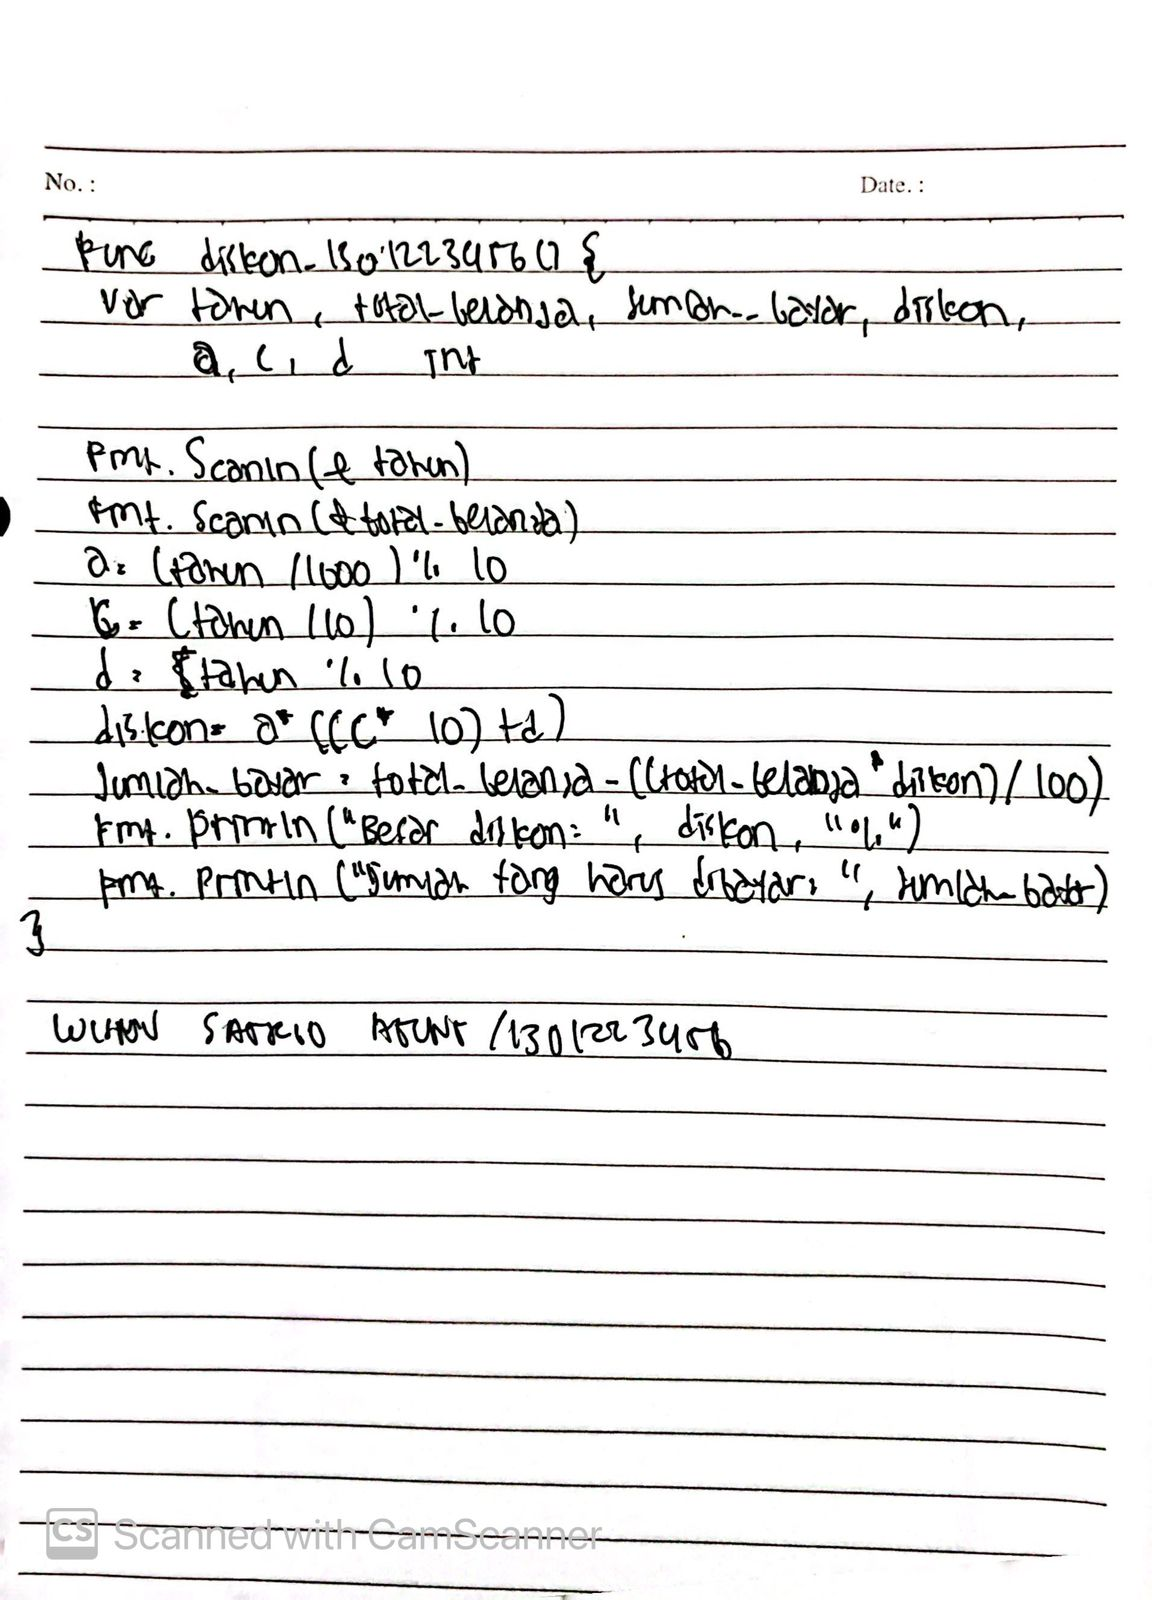 No. :
Date. :
func diskon_1301223456() {
var tahun, total_belanja, jumlah_bayar, diskon,
a, c, d int
fmt. Scanln(& tahun)
fmt. Scanln(& total_belanja)
a = (tahun /1000) % 10
c = (tahun /10) % 10
d = tahun % 10
diskon = a* (((c* 10) +d)
Jumlah_bayar = total_belanja - ((total_belanja * diskon) / 100)
fmt. Println ("Besar diskon: ", diskon, "%")
fmt. Println ("Jumlah yang harus dibayar: ", jumlah_bayar)
}
SATRIO /1301223456
CS Scanned with CamScanner